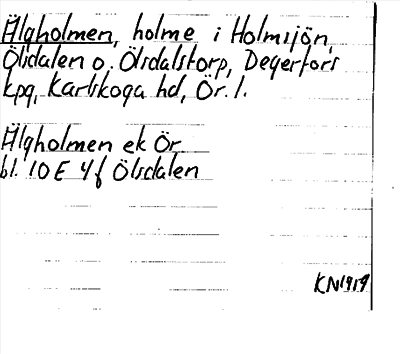 Älgholmen, holme i Holmsjön,
Ölsdalen o. Ölsdalstorp, Degerfors
kpg, Karlskoga hd, Ör. l.
Älgholmen ek Ör
bl. 10 E 4 f Ölsdalen
KN1919